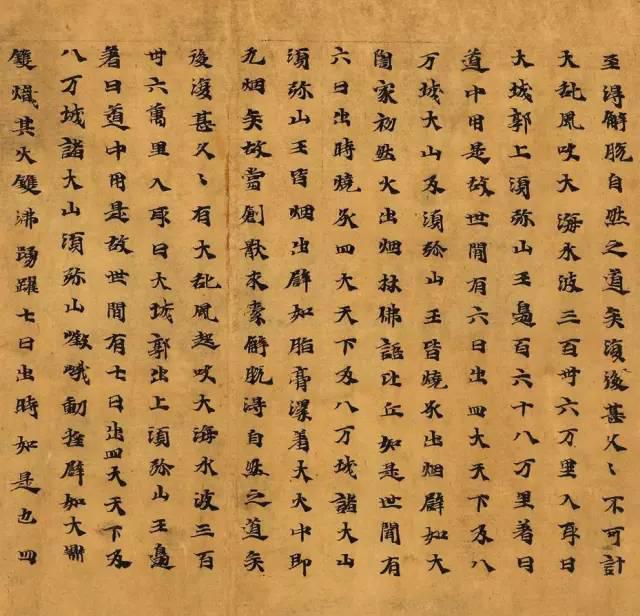 至得解脫自然之道矣復後甚久〻不可計
大亂風吹大海水波三百卅六万里入取日
大城郭上須弥山王邊百六十八万里著日
道中用是故世閒有六日出四大天下及八
万城大山及須弥山王皆燒炙出烟譬如大
陶家初然火出烟扶佛語比丘如是世閒有
六日出時燒炙四大天下及八万城諸大山
須弥山王皆烟出譬如脂膏瀑著大火中即
九烟矣故當創猒求索解脫得自然之道矣
後復甚久〻有大亂風起吹大海水波三百
卅六萬里入取日大城郭出上須弥山王邊
著日道中用是故世閒有七日出四天天下及
八万城諸大山須弥山嗷峨動搖譬如大鼎
雙熾其火雙沸踴躍七日出時如是也四